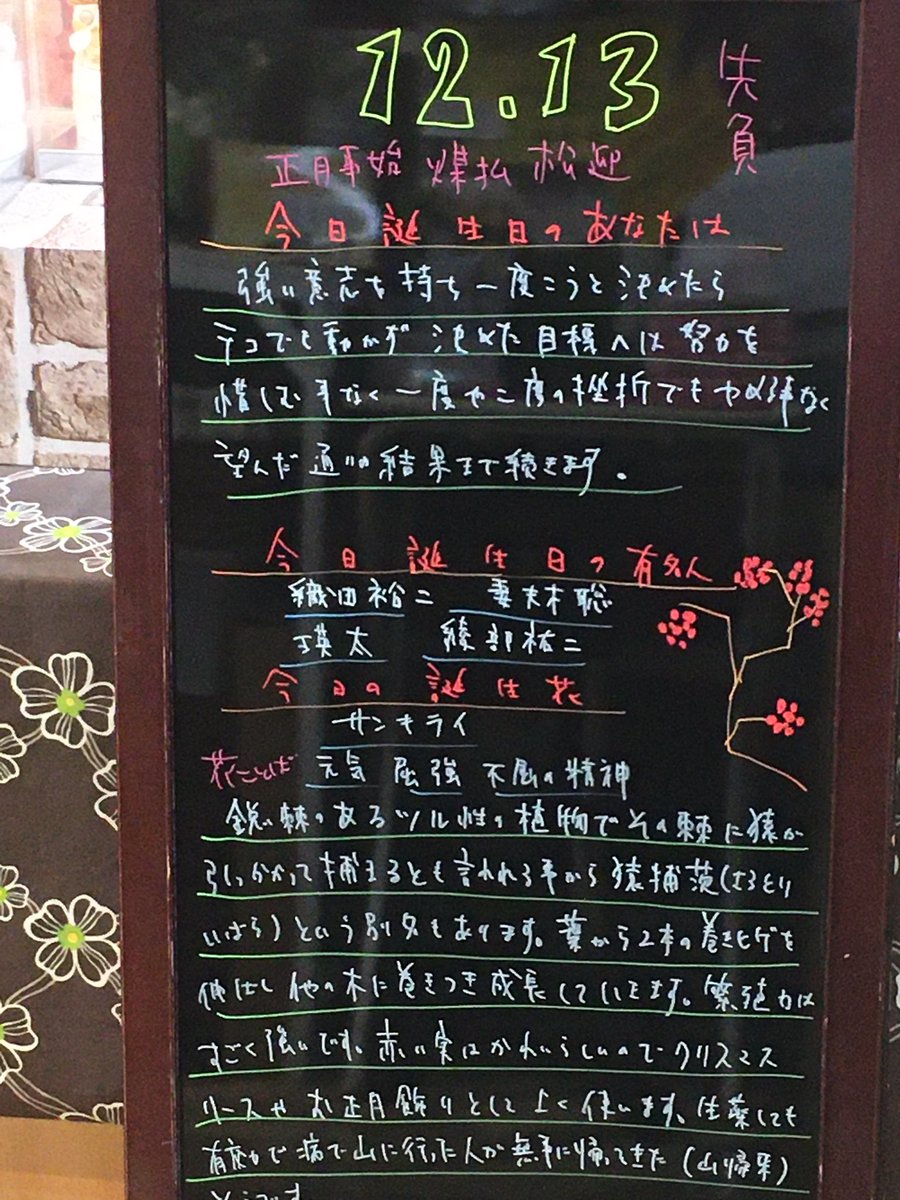 12.13 先負
正月事始 煤払 松迎
今日誕生日のあなたは
強い意志を持ち一度こうと決めたら
テコでも動かず決めた目標へは努力を
惜しむ事なく一度や二度の挫折でもやめる事なく
望んだ通りの結果まで続きます。
今日誕生日の有名人
織田裕二 妻夫木聡
瑛太 綾部祐二
今日の誕生花
サンキライ
花ことば 元気 屈強 不屈の精神
鋭い棘のあるツル性の植物でその棘に猿が
引っかかって捕まるとも言われる事から猿捕茨(さるとり
いばら)という別名もあります。葉から2本の巻きヒゲを
伸ばし他の木に巻きつき成長していきます。繁殖力は
すごく強いです。赤い実はかわいらしいのでクリスマス
リースやお正月飾りとしてよく使います。生薬しても
有効で病で山に行った人が無事に帰ってきた(山帰来)
そうです